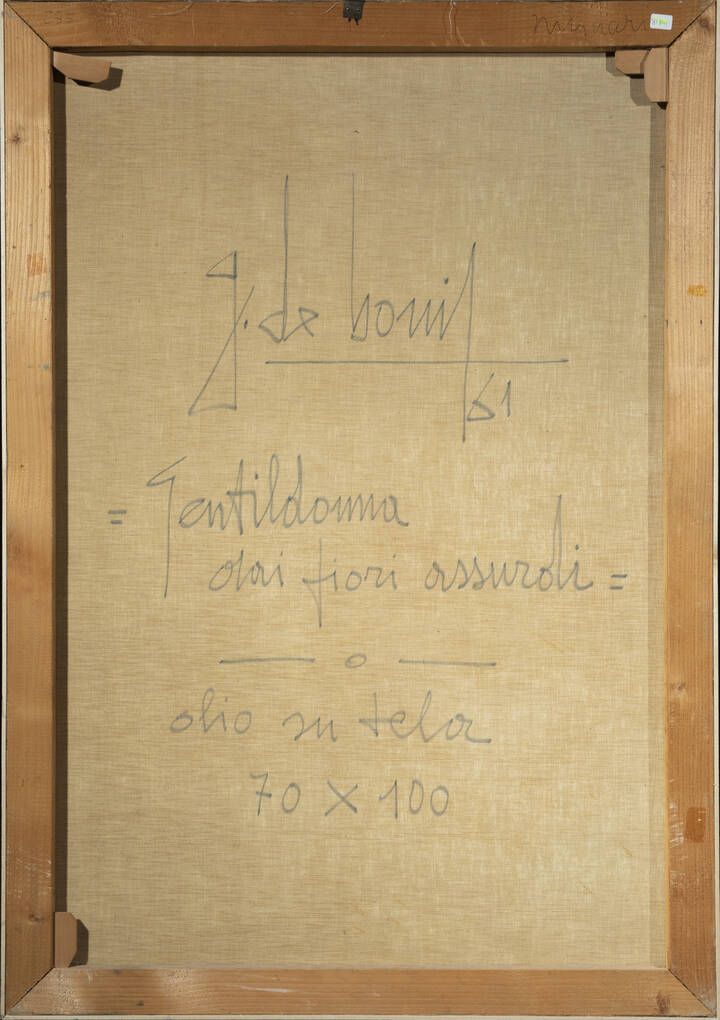 g. de bonis
61
= Gentildonna
dai fiori assurdi =
olio su tela
70 X 100